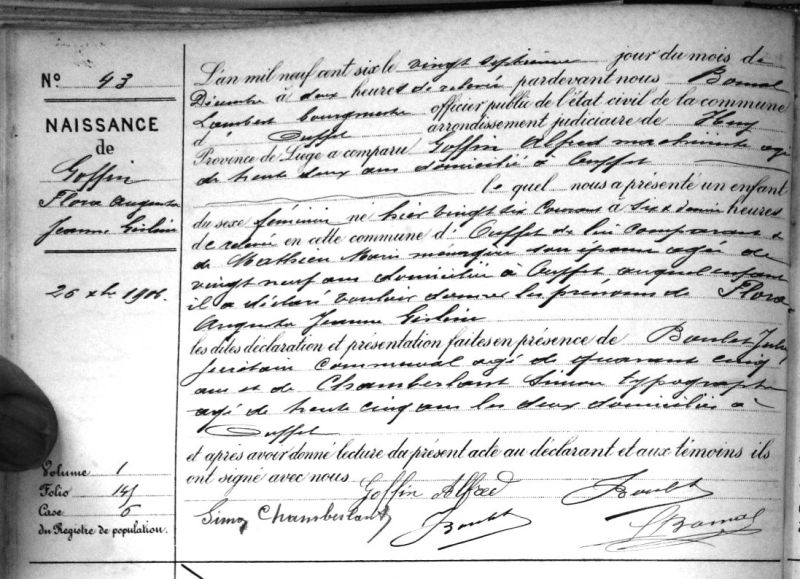 N° 43
NAISSANCE
de
Goffin
Flora Augusta
Jeanne Gislaine
26 xbre 1906.
Volume 1
Folio 145
Case 6
du Registre de population.
L'an mil neuf cent six le vingt septième jour du mois de
Décembre à deux heures de relevée pardevant nous Bomal
Lambert bourgmestre officier public de l'état civil de la commune
d' Ouffet arrondissement judiciaire de Huy
Province de Liége a comparu Goffin Alfred machiniste agé
de trente deux ans domicilié à Ouffet
lequel nous a présenté un enfant
du sexe féminin né hier vingt six courant à six ½ heures
de relevée en cette commune d' Ouffet de lui comparant &
de Mathieu Marie ménagère son épouse agée de
vingt neuf ans domiciliée à Ouffet auquel enfant
il a déclaré vouloir donner les prénoms de Flora
Augusta Jeanne Gislaine
les dites déclaration et présentation faites en présence de Boulet Jules
secrétaire communal agé de quarante cinq
ans et de Chamberlant Simon typographe
agé de trente cinq ans les deux domiciliés à
Ouffet
et après avoir donné lecture du présent acte au déclarant et aux témoins ils
ont signé avec nous Goffin Alfred J Boulet
Simon Chamberlant J Boulet L Bomal